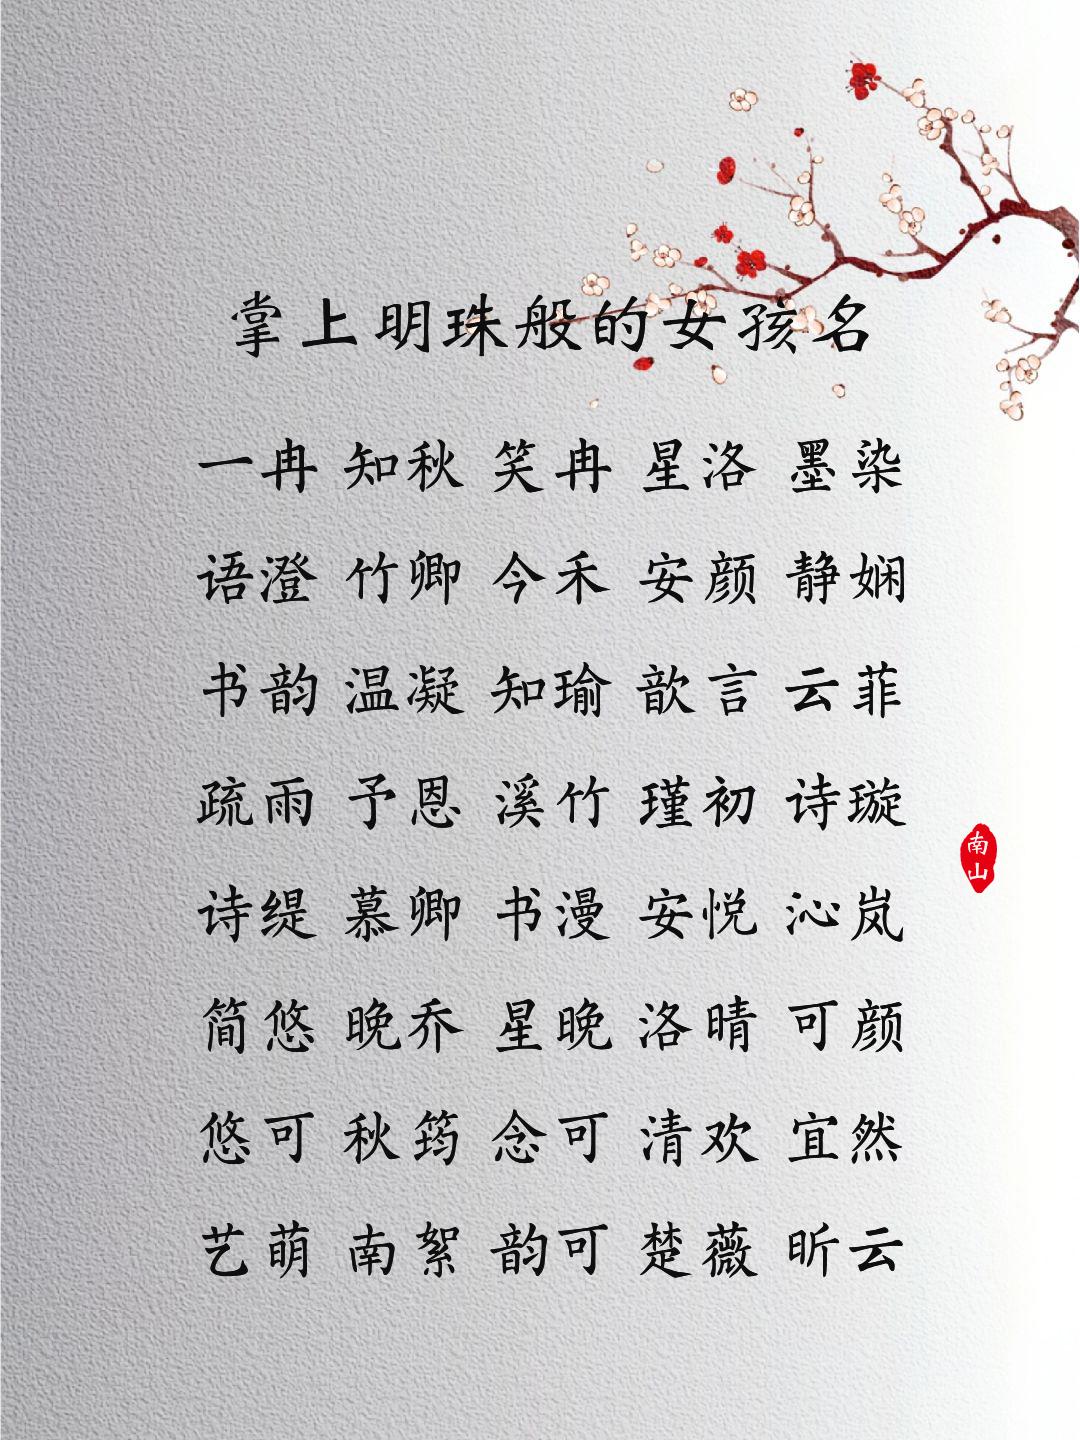 掌上明珠般的女孩名
一冉 知秋 笑冉 星洛 墨染
语澄 竹卿 今禾 安颜 静娴
书韵 温凝 知瑜 歆言 云菲
疏雨 予恩 溪竹 瑾初 诗璇
南山
诗缇 慕卿 书漫 安悦 沁岚
简悠 晚乔 星晚 洛晴 可颜
悠可 秋筠 念可 清欢 宜然
艺萌 南絮 韵可 楚薇 昕云